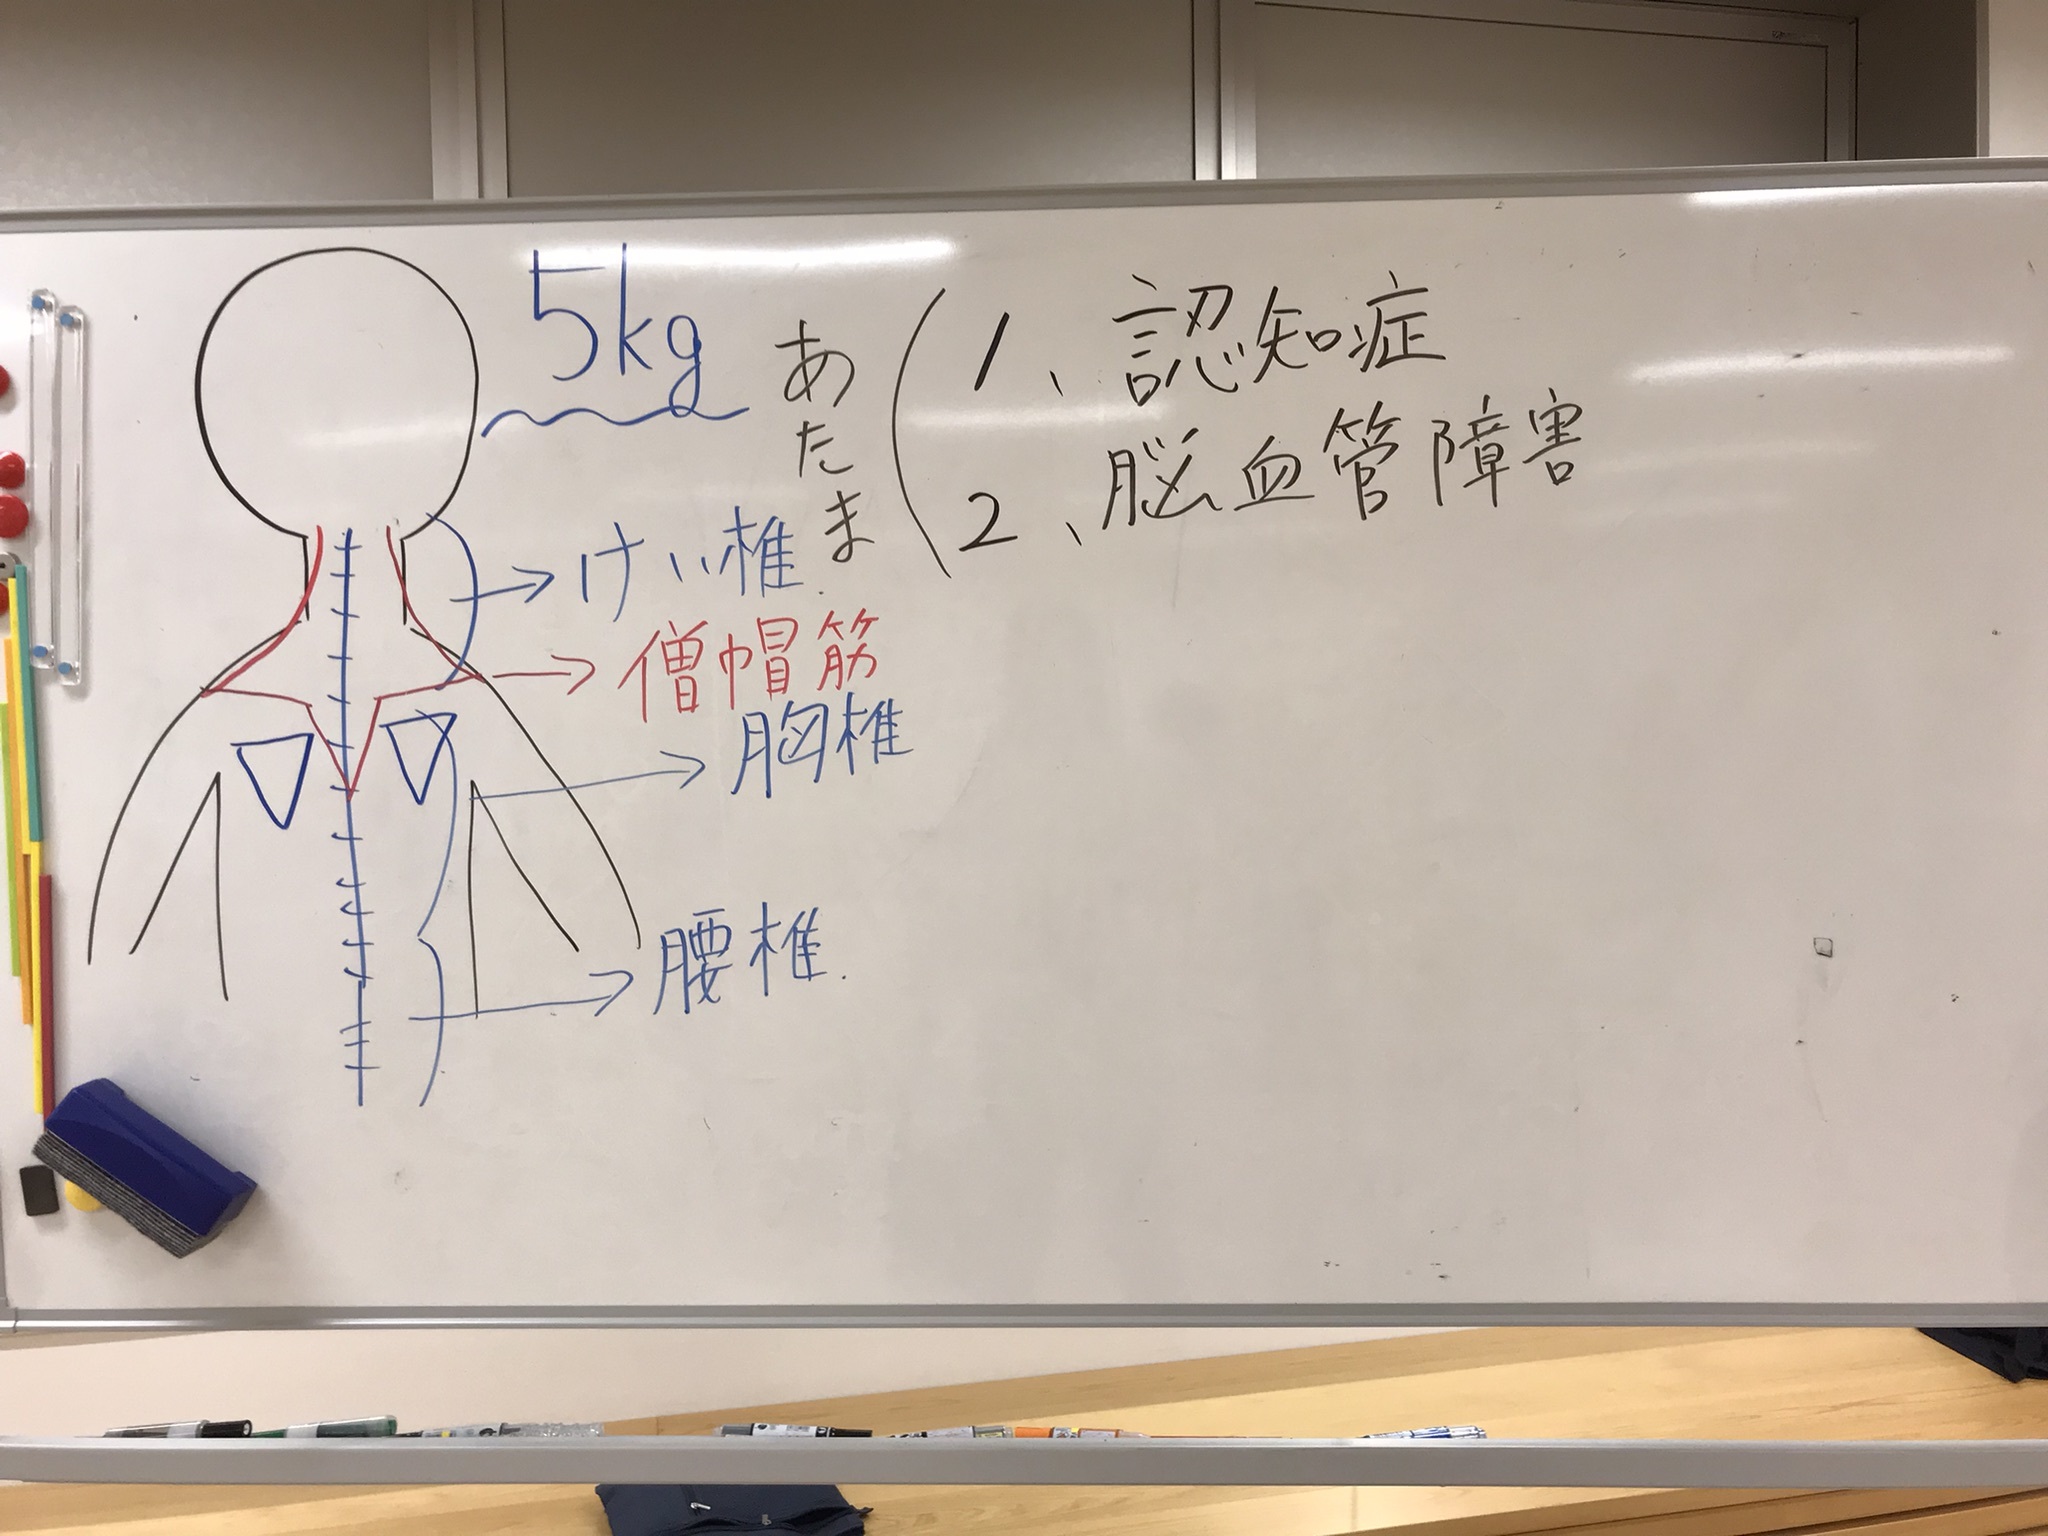 5kg
あたま
1、認知症
2、脳血管障害
けい椎
僧帽筋
胸椎
腰椎